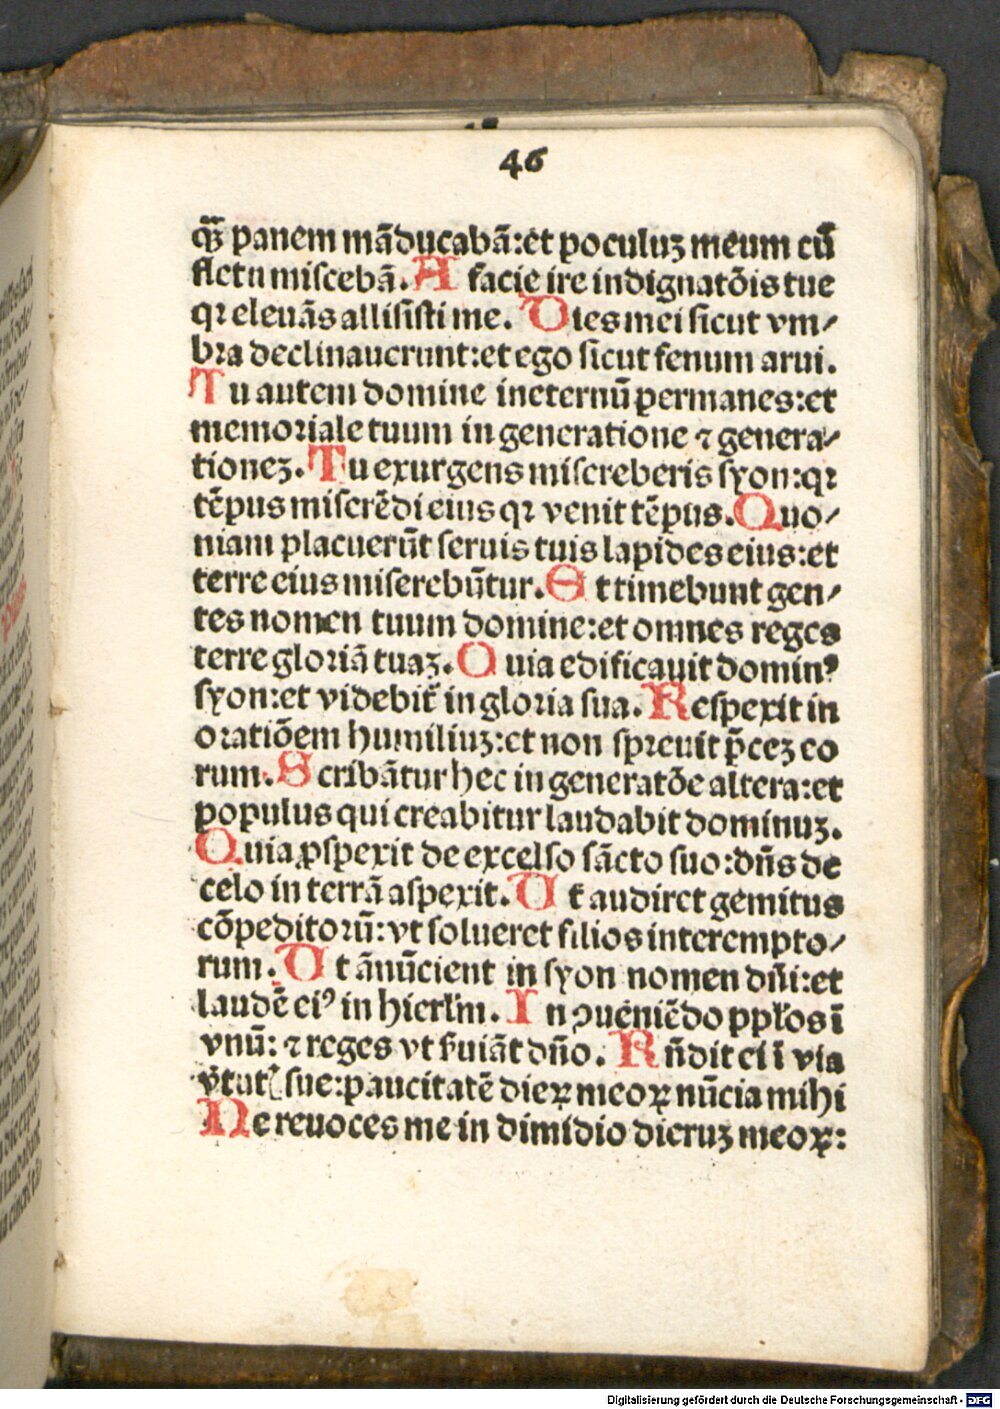 46
q̃ȝ panem mãducabã:et poculuȝ meum cũ
fletu miscebã. A facie ire indignatõis tue
qꝛ eleuãs allisisti me. Dies mei sicut vm⸗
bra declinauerunt:et ego sicut fenum arui.
Tu autem domine ineternũ permanes:et
memoriale tuum in generatione ⁊ genera⸗
tioneȝ. Tu exurgens misereberis syon:qꝛ
tẽpus miserẽdi eius qꝛ venit tẽpus. Quo⸗
niam placuerũt seruis tuis lapides eius:et
terre eius miserebũtur. Et timebunt gen⸗
tes nomen tuum domine:et omnes reges
terre gloriã tuaȝ. Quia edificauit dominꝰ
syon:et videbit᷑ in gloria sua. Respexit in
oratiõem humiliuȝ:et non spreuit p̃ceȝ eo
rum. Scribãtur hec in generatõe altera:et
populus qui creabitur laudabit dominuȝ.
Quia ꝓspexit de excelso sãcto suo:dñs de
celo in terrã aspexit. Ut audiret gemitus
cõpeditorũ:vt solueret filios interempto⸗
rum. Ut ãnũcient in syon nomen dñi:et
laudẽ eiꝰ in hierłm. In ꝯueniẽdo ppłos ĩ
vnũ: ⁊ reges vt ẜuiãt dño. Rñdit ei ĩ via
ṽtutꝭ sue:paucitatẽ dieꝝ meoꝝ nũcia mihi
Ne reuoces me in dimidio dieruȝ meoꝝ:
Digitalisierung gefördert durch die Deutsche Forschungsgemeinschaft - DFG